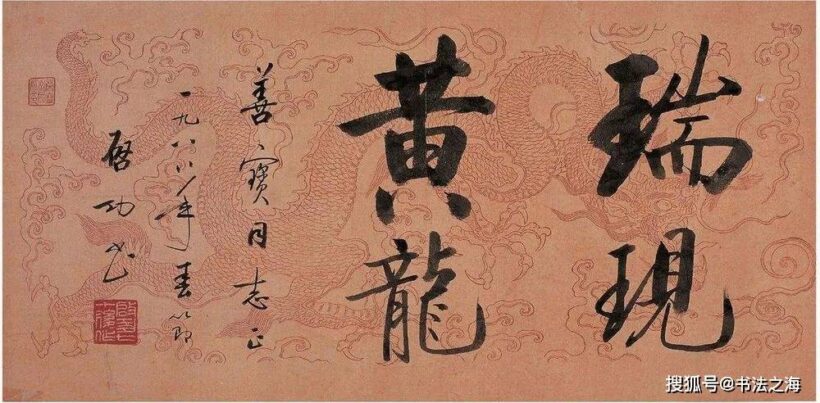 瑞現
黄龍
善寶同志正
一九八八年春節
啓功书
搜狐号@书法之海